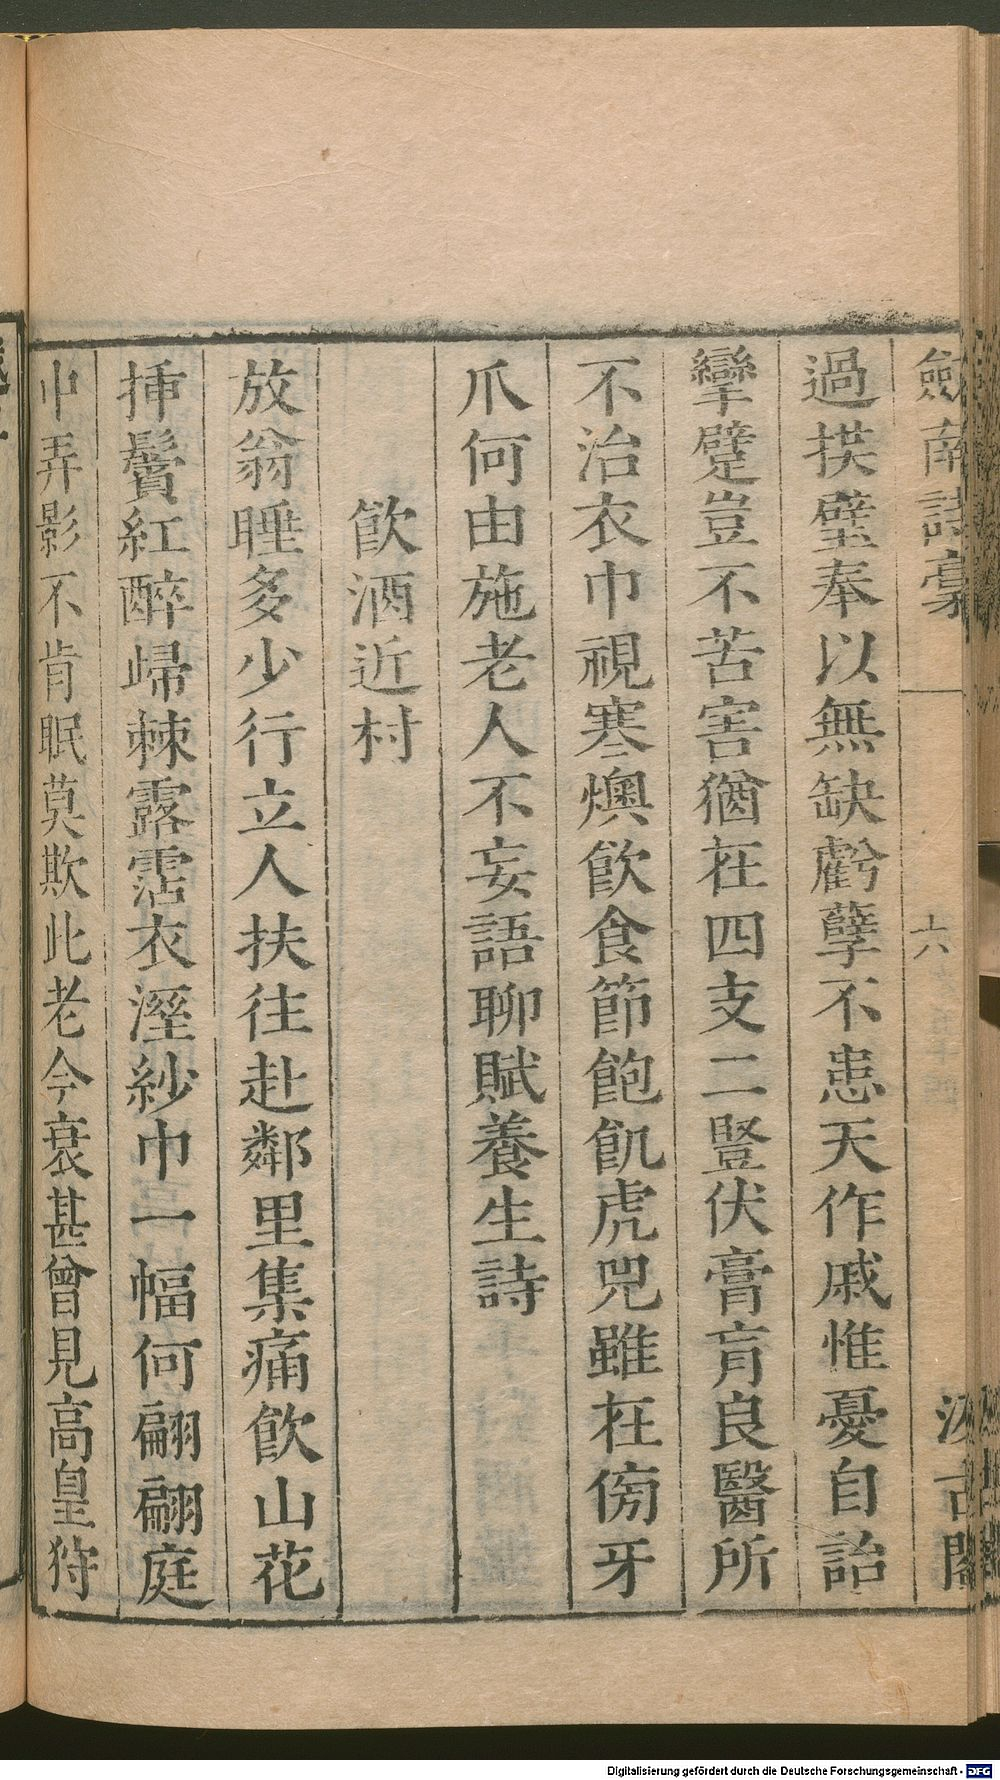 劍南詩稾
十六
汲古閣
過㨛璧奉以無缺虧孽不患天作戚惟憂自詒
攣躄豈不苦害猶在四支二豎伏膏肓良醫所
不治衣巾視寒燠飲食節飽飢虎兕雖在傍牙
爪何由施老人不妄語聊賦養生詩
飲酒近村
放翁睡多少行立人扶往赴鄰里集痛飲山花
揷鬢紅醉歸棘露霑衣溼紗巾一幅何翩翩庭
中弄影不肯眠莫欺此老今衰甚曾見高皇狩
Digitalisierung gefördert durch die Deutsche Forschungsgemeinschaft - DFG